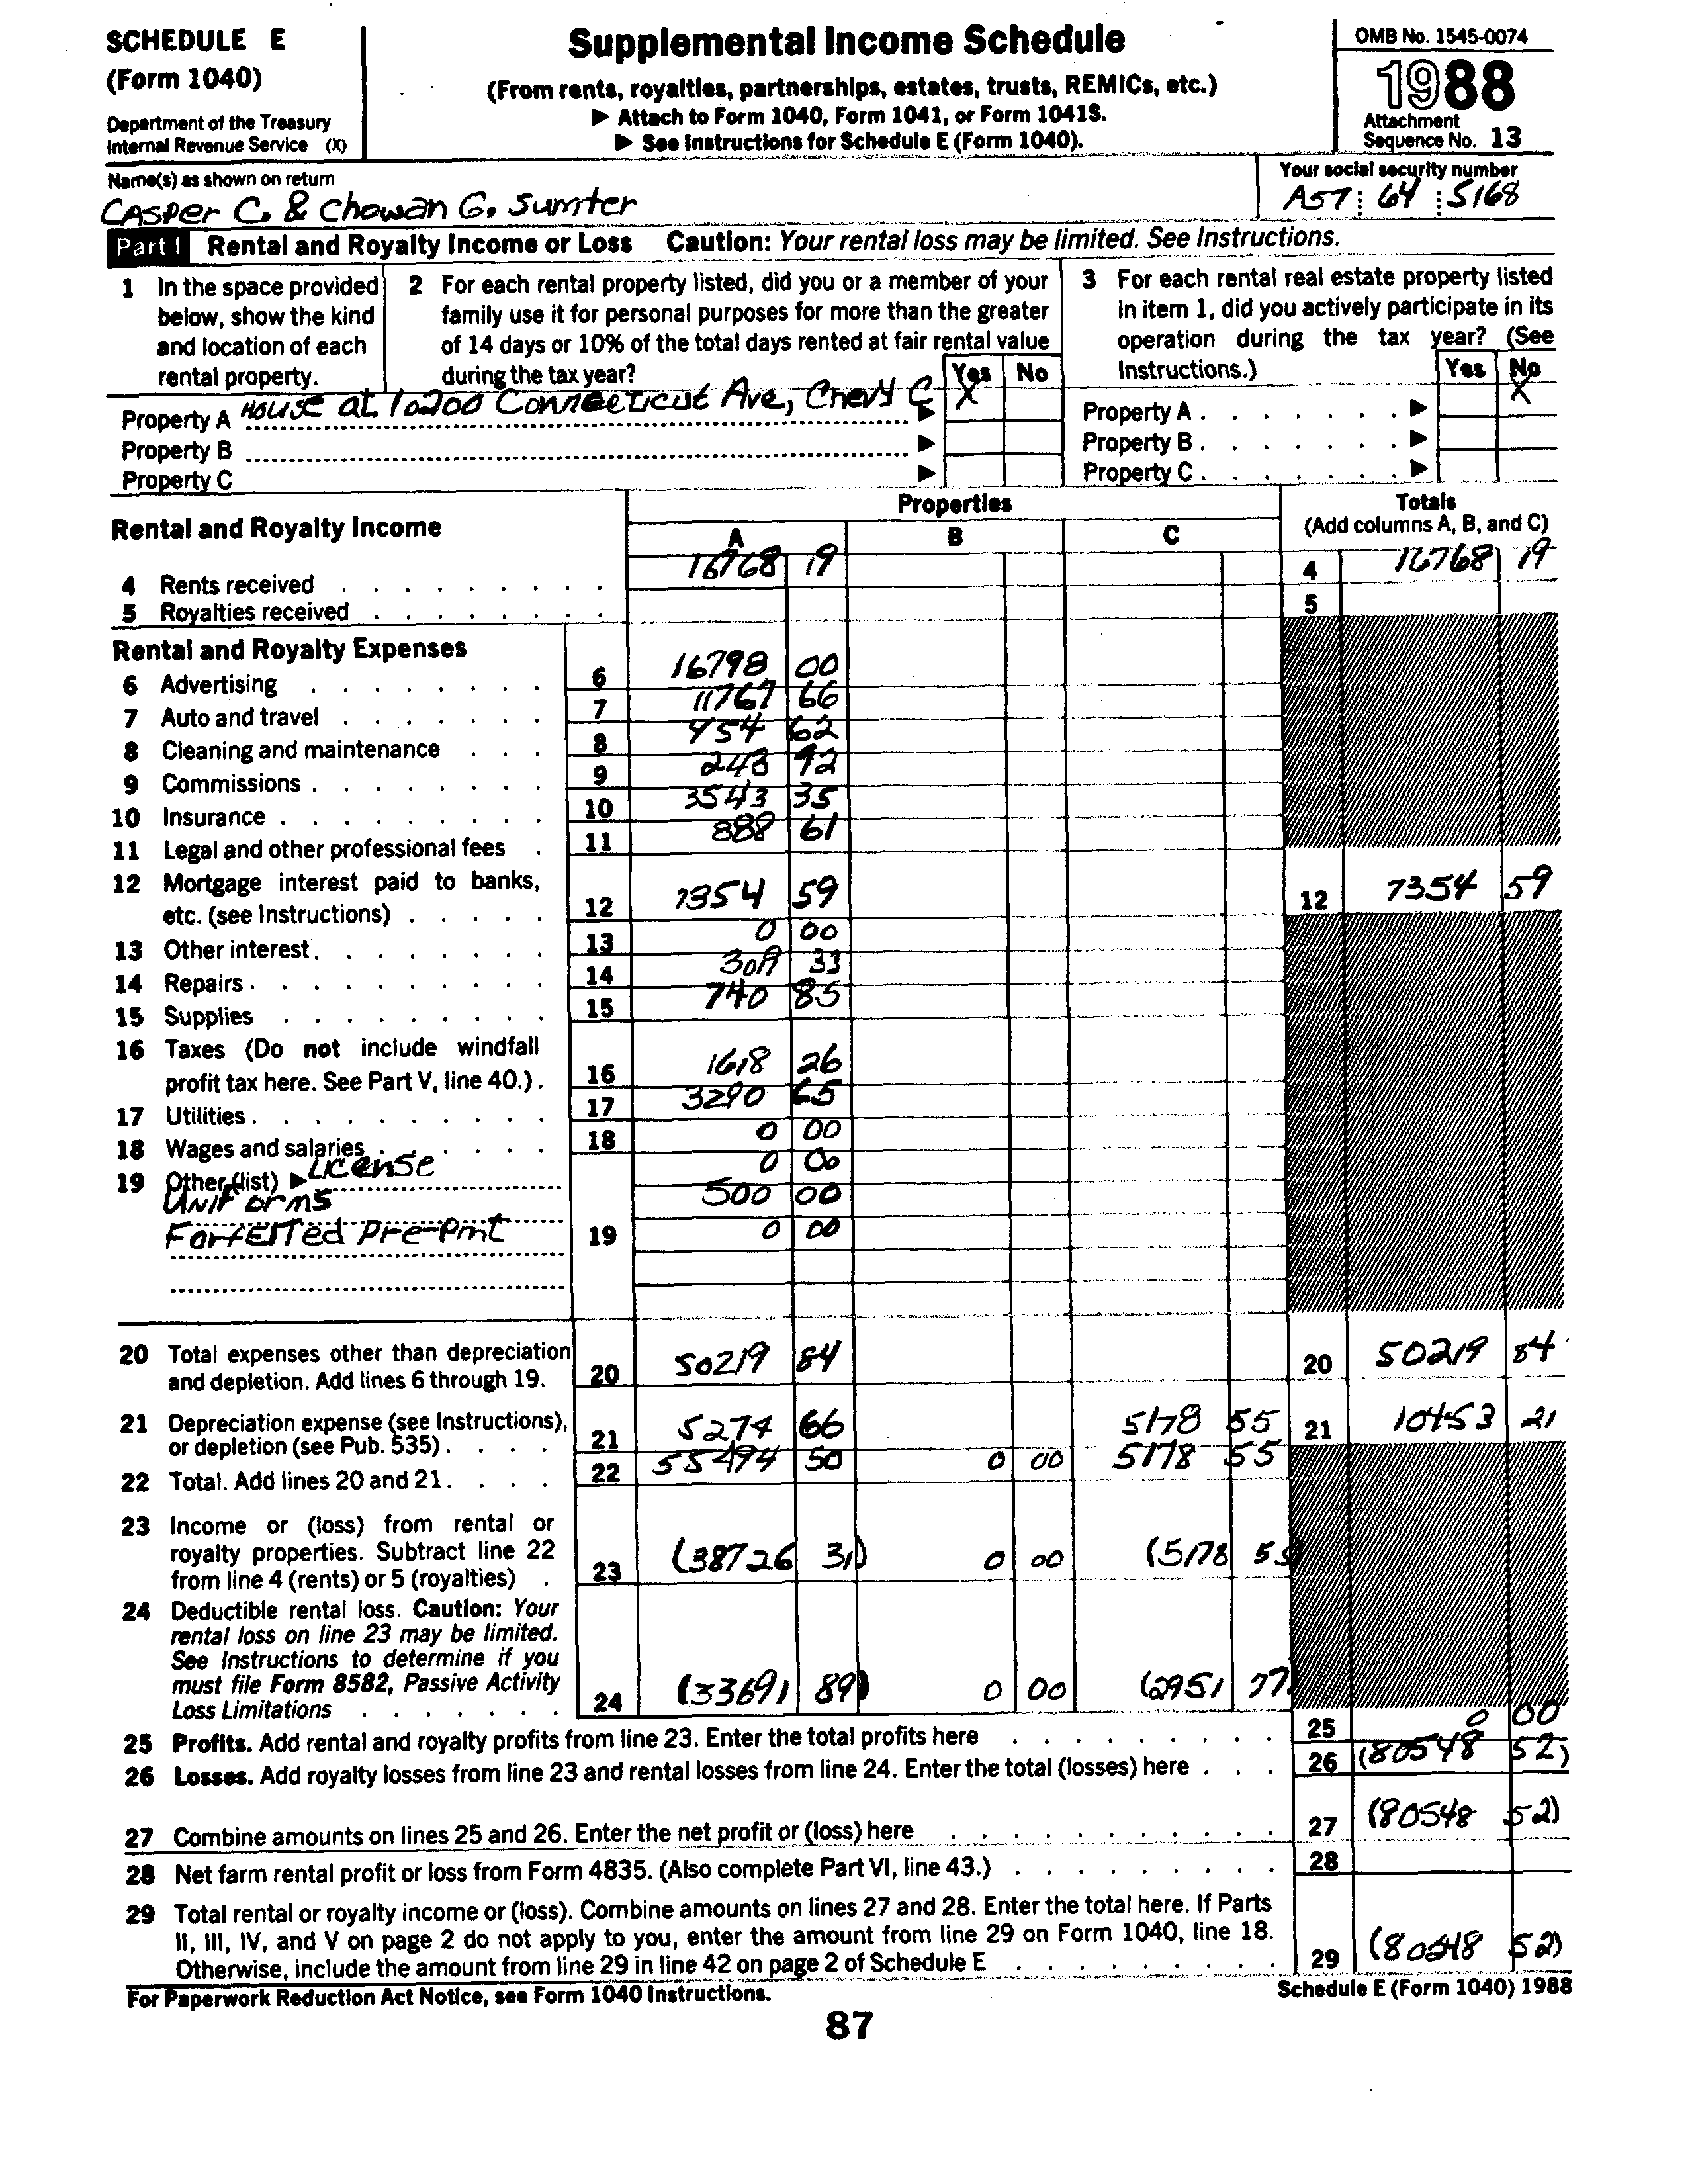 SCHEDULE E
(Form 1040)
Department of the Treasury
Internal Revenue Service (X)
Supplemental Income Schedule
(From rents, royalties, partnerships, estates, trusts, REMICs, etc.)
▶ Attach to Form 1040, Form 1041, or Form 1041S.
▶ See Instructions for Schedule E (Form 1040).
OMB No. 1545-0074
1988
Attachment
Sequence No. 13
Name(s) as shown on return
Casper C. & Chowan G. Sumter
Your social security number
A57 64 5168
Part I Rental and Royalty Income or Loss Caution: Your rental loss may be limited. See Instructions.
1 In the space provided
below, show the kind
and location of each
rental property.
2 For each rental property listed, did you or a member of your
family use it for personal purposes for more than the greater
of 14 days or 10% of the total days rented at fair rental value
during the tax year? Yes No
3 For each rental real estate property listed
in item 1, did you actively participate in its
operation during the tax year? (See
Instructions.) Yes No
Property A House at 10200 Connecticut Ave, Chevy C ▶ X
Property B ▶
Property C ▶
Property A . . . . . . . ▶ X
Property B . . . . . . . ▶
Property C . . . . . . . ▶
Rental and Royalty Income
Properties
A B C
Totals
(Add columns A, B, and C)
4 Rents received 16768 19 4 16768 19
5 Royalties received 5
Rental and Royalty Expenses
6 Advertising 6 16798 00
7 Auto and travel 7 11767 66
8 Cleaning and maintenance 8 454 62
9 Commissions 9 243 92
10 Insurance 10 3543 35
11 Legal and other professional fees 11 888 61
12 Mortgage interest paid to banks,
etc. (see Instructions) 12 7354 59 12 7354 59
13 Other interest 13 0 00
14 Repairs 14 33
15 Supplies 15 740 85
16 Taxes (Do not include windfall
profit tax here. See Part V, line 40.) 16 1618 26
17 Utilities 17 3290 65
18 Wages and salaries 18 0 00
19 Other (list) ▶ License 0 00
Uniforms 500 00
Forfeited Pre-Pmt 19 0 00
20 Total expenses other than depreciation
and depletion. Add lines 6 through 19. 20 50219 84 20 50219 84
21 Depreciation expense (see Instructions),
or depletion (see Pub. 535) 21 5274 66 5178 55 21 10453 21
22 Total. Add lines 20 and 21 22 55494 50 0 00 5178 55
23 Income or (loss) from rental or
royalty properties. Subtract line 22
from line 4 (rents) or 5 (royalties) 23 (38726 31) 0 00 (5178 55)
24 Deductible rental loss. Caution: Your
rental loss on line 23 may be limited.
See Instructions to determine if you
must file Form 8582, Passive Activity
Loss Limitations 24 (33691 89) 0 00 (2951 77)
25 Profits. Add rental and royalty profits from line 23. Enter the total profits here 25 0 00
26 Losses. Add royalty losses from line 23 and rental losses from line 24. Enter the total (losses) here 26 (80548 52)
27 Combine amounts on lines 25 and 26. Enter the net profit or (loss) here 27 (80548 52)
28 Net farm rental profit or loss from Form 4835. (Also complete Part VI, line 43.) 28
29 Total rental or royalty income or (loss). Combine amounts on lines 27 and 28. Enter the total here. If Parts
II, III, IV, and V on page 2 do not apply to you, enter the amount from line 29 on Form 1040, line 18.
Otherwise, include the amount from line 29 in line 42 on page 2 of Schedule E 29 (80548 52)
For Paperwork Reduction Act Notice, see Form 1040 Instructions. Schedule E (Form 1040) 1988
87